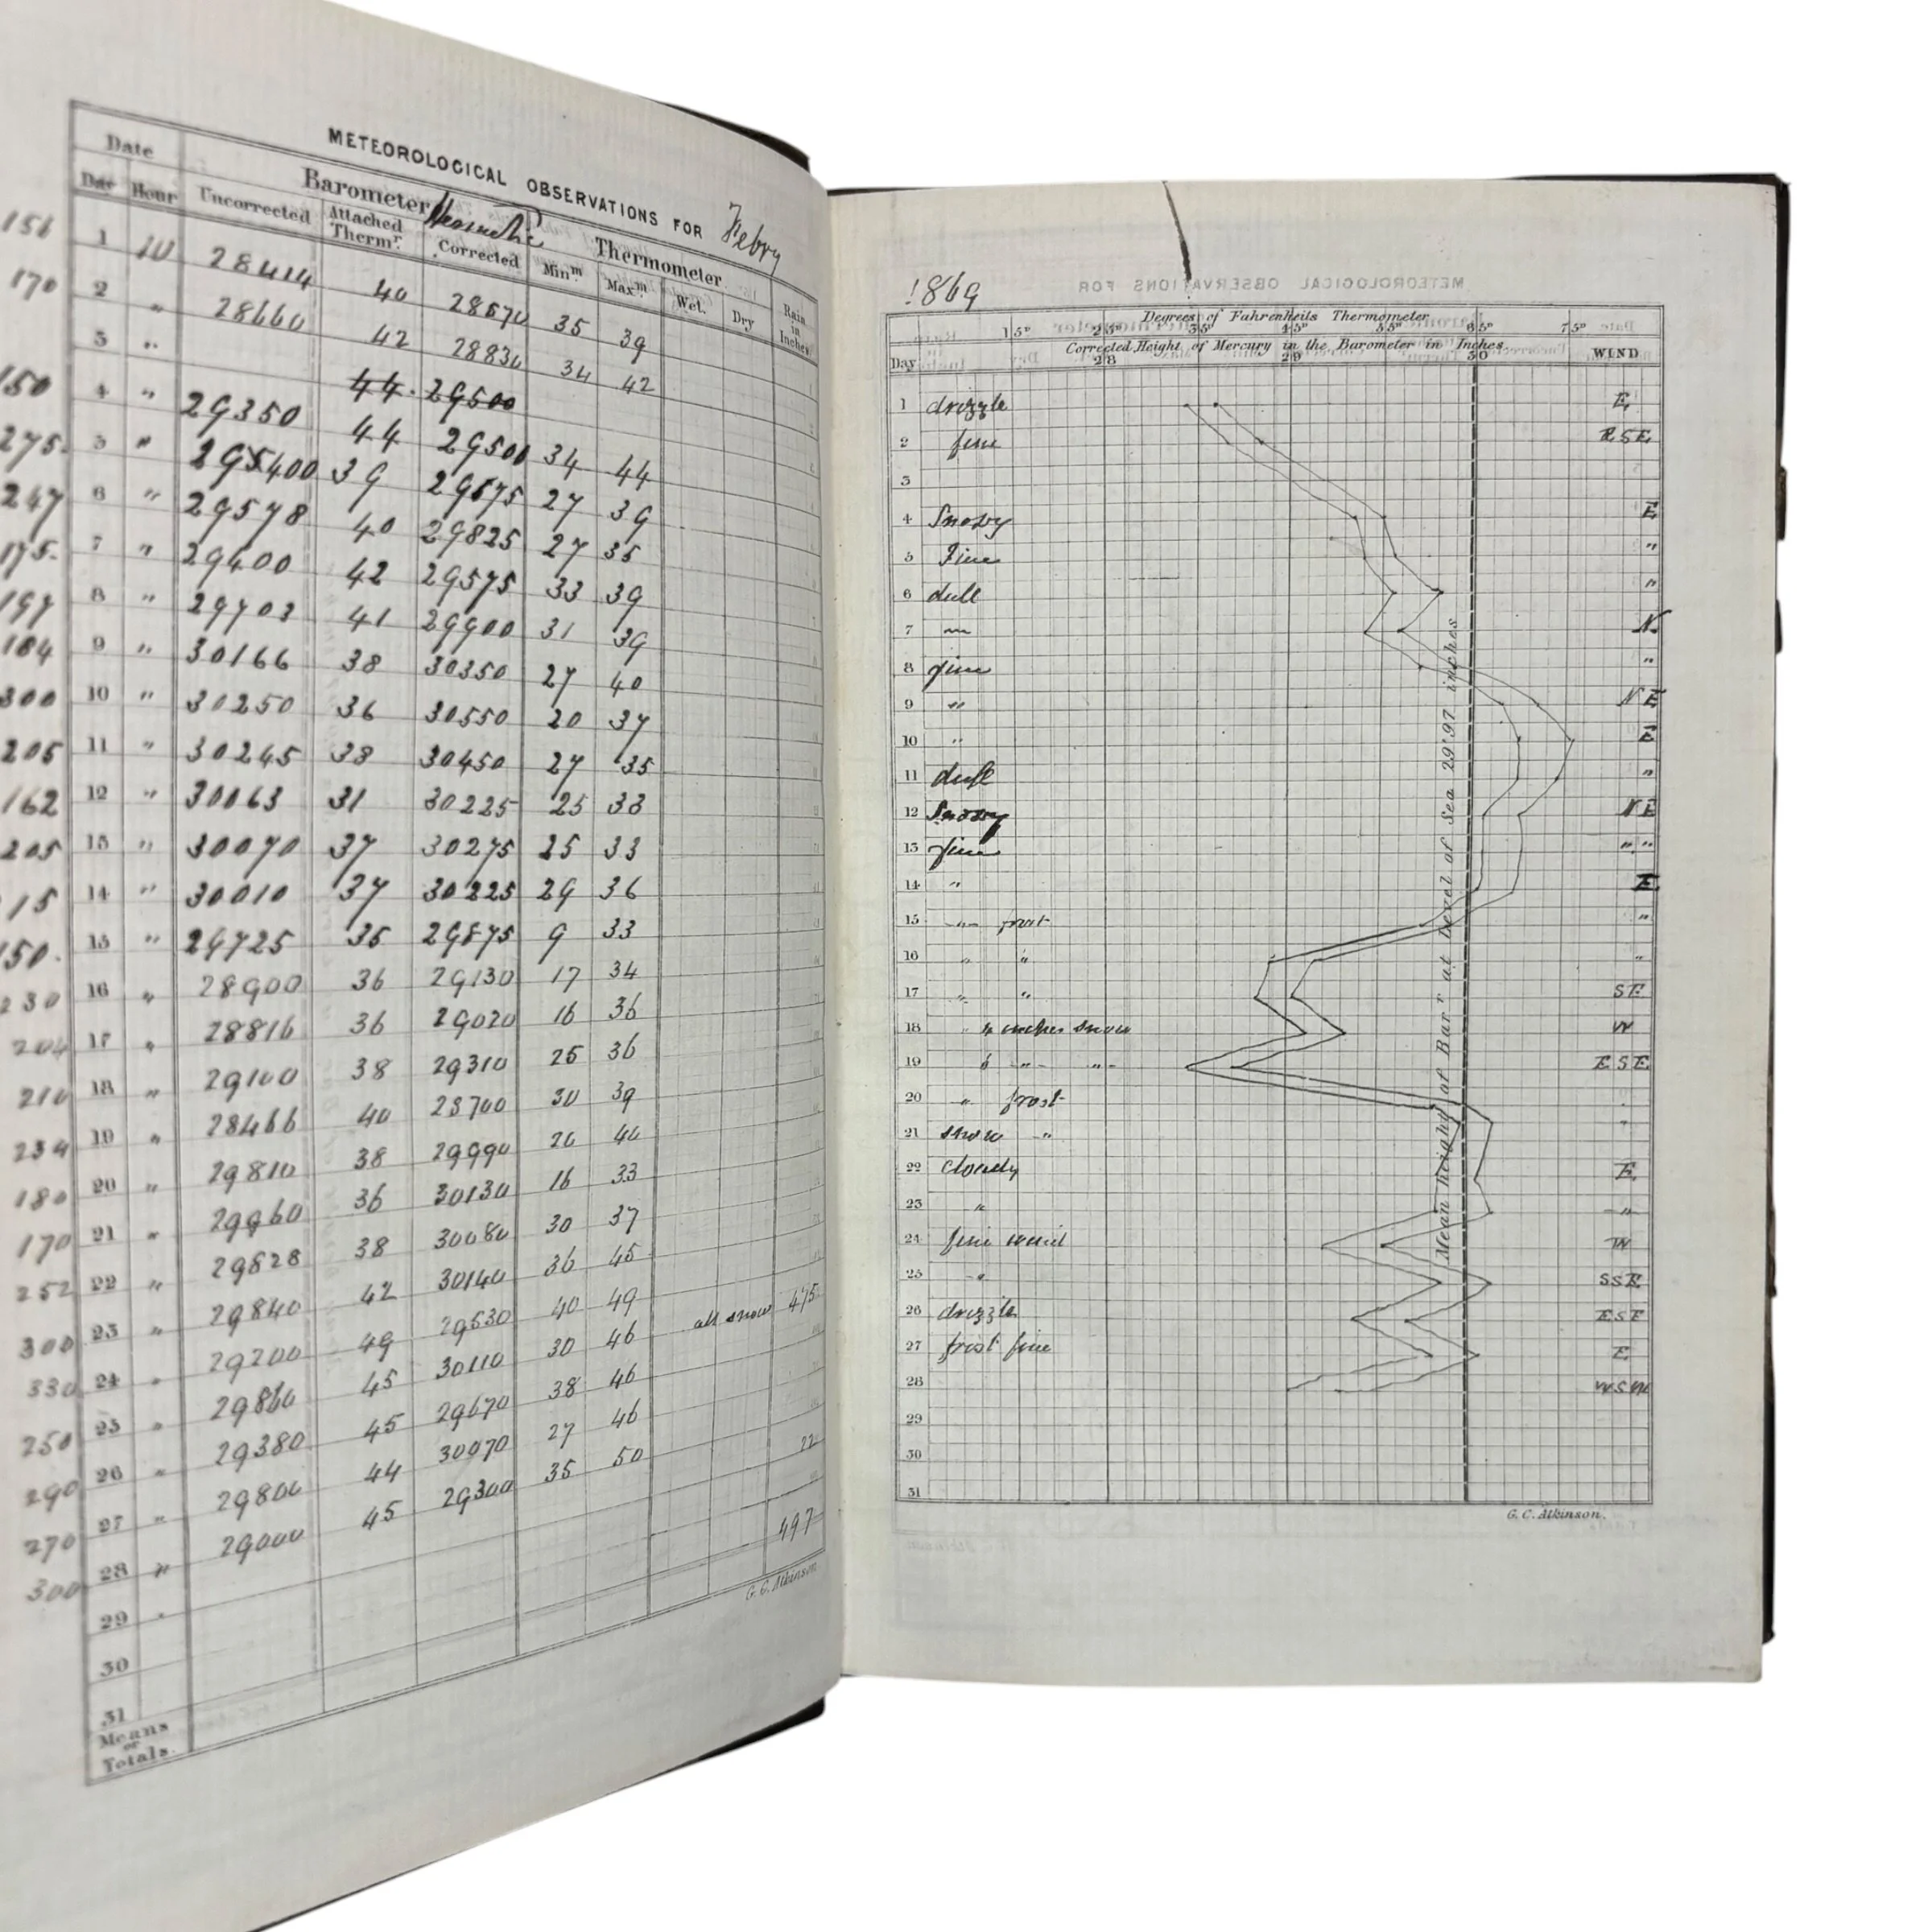 METEOROLOGICAL OBSERVATIONS FOR Febry
Date Barometer Thermometer Rain in Inches
Day Hour Uncorrected Attached Thermr. Corrected Minm Maxm Wet. Dry
156 1 10 28414 40 28570 35 39
170 2 " 28660 42 28830 34 42
3 " 44. 29500
150 4 " 29350 44 29500 34 44
275. 5 " 295400 39 29675 27 39
247 6 " 29578 40 29825 27 35
175. 7 " 29400 42 29575 33 39
197 8 " 29703 41 29900 31 39
184 9 " 30166 38 30350 27 40
300 10 " 30250 36 30550 20 37
205 11 " 30245 38 30450 27 35
162 12 " 30063 31 30225 25 33
205 13 " 30070 37 30275 25 33
15 14 " 30010 37 30225 29 36
150. 15 " 29725 35 29875 9 33
230 16 " 28900 36 29130 17 34
204 17 " 28816 36 29020 16 36
210 18 " 29100 38 29310 25 36
234 19 " 28466 40 28700 30 39
180 20 " 29810 38 29990 26 40
170 21 " 29960 36 30130 16 33
252 22 " 29828 38 30080 30 37
300 23 " 29840 42 30140 36 45
330 24 " 29200 49 29530 40 49 all snow 475
250 25 " 29860 45 30110 30 46
290 26 " 29380 45 29670 38 46
270 27 " 29800 44 30070 27 46
300 28 " 29000 45 29300 35 50 22
29 "
30
31 497
Means or Totals.
G. C. Atkinson
1869
Degrees of Fahrenheits Thermometer
15° 25° 35° 45° 55° 65° 75°
Corrected Height of Mercury in the Barometer in Inches
Day 28 29 30 WIND
1 drizzle E
2 fine ESE
3
4 Snowy E
5 Fine "
6 dull "
7 " N
8 fine "
9 " NE
10 " E
11 dull "
12 Snowy NE
13 fine " "
14 " E
15 " frost "
16 " " "
17 " " SE
18 " 4 inches snow W
19 6 " " ESE
20 " frost "
21 snow " "
22 cloudy E
23 " "
24 fine wind W
25 " SSE
26 drizzle ESE
27 frost fine E
28 WSW
29
30
31
Mean height of Bar r at Level of Sea 29'97 inches
G. C. Atkinson.